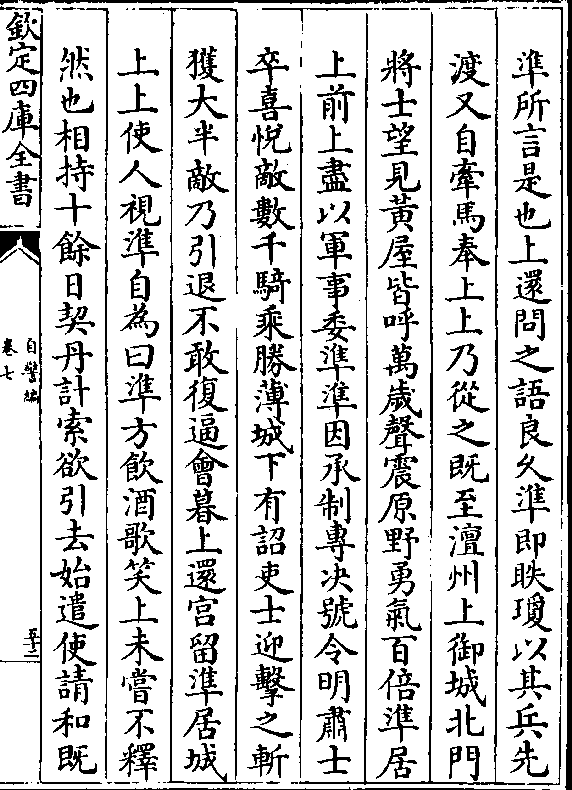 準所言是也上還問之語良久準即眣瓊以其兵先
渡又自牽馬奉上上乃從之既至澶州上御城北門
將士望見黃屋皆呼萬歲聲震原野勇氣百倍準居
上前上盡以軍事委準準因承制專决號令明肅士
卒喜悅敵數千騎乘勝薄城下有詔吏士迎擊之斬
獲大半敵乃引退不敢復逼會暮上還宮留準居城
上上使人視準自為曰準方飲酒歌笑上未嘗不釋
然也相持十餘日契丹計索欲引去始遣使請和既
欽定四庫全書
自警編
卷七
五十二